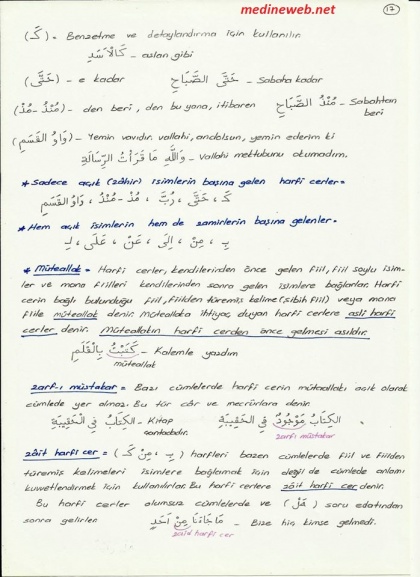 medineweb.net
17
(كَـ) = Benzetme ve detaylandırma için kullanılır.
كَالْاَسَدِ - aslan gibi
(حَتَّى) - e kadar حَتَّى الصَّبَاحِ - Sabaha kadar
(مُنْذُ-مُذْ) - den beri, den bu yana, itibaren مُنْذُ الصَّبَاحِ - Sabahtan beri
(وَاوُ الْقَسَمِ) - Yemin vavıdır. vallahi, andolsun, yemin ederim ki
وَاللّٰهِ مَا قَرَأْتُ الرِّسَالَةَ - Vallahi mektubunu okumadım.
* Sadece açık (zâhir) isimlerin başına gelen harfi cerler =
كَـ ، حَتَّى ، رُبَّ ، مُذْ - مُنْذُ ، وَاوُ الْقَسَمِ
* Hem açık isimlerin hem de zamirlerin başına gelenler =
بِـ ، مِنْ ، اِلَى ، عَنْ ، عَلَى ، لِـ
* Müteallak = Harfi cerler, kendilerinden önce gelen fiil, fiil soylu isim-
ler ve mana fiilleri kendilerinden sonra gelen isimlere bağlarlar. Harfi
cerin bağlı bulunduğu fiil, fiilden türemiş kelime (şibih fiil) veya mana
fiile müteallak denir. Müteallaka ihtiyaç duyan harfi cerlere asli harfi
cerler denir. Müteallakın harfi cerden önce gelmesi asıldır.
كَتَبْتُ بِالْقَلَمِ - Kalemle yazdım
müteallak
Zarf-ı müstakar = Bazı cümlelerde harfi cerin müteallakı açık olarak
cümlede yer almaz. Bu tür câr ve mecrûrlara denir.
الكِتَابُ مَوْجُودٌ فِي الْحَقِيبَةِ الْكِتَابُ فِي الْحَقِيبَةِ - Kitap çantadadır.
zarfı müstakar
Zâit harfi cer = (بِـ ، مِنْ ، كَـ) harfleri bazen cümlelerde fiil ve fiilden
türemiş kelimeleri isimlere bağlamak için değil de cümlede anlamı
kuvvetlendirmek için kullanılırlar. Bu harfi cerlere zâit harfi cer denir.
Bu harfi cerler olumsuz cümlelerde ve (هَلْ) soru edatından
sonra gelirler. مَا جَائَنَا مِنْ اَحَدٍ - Bize hiç kimse gelmedi.
zâid harfi cer